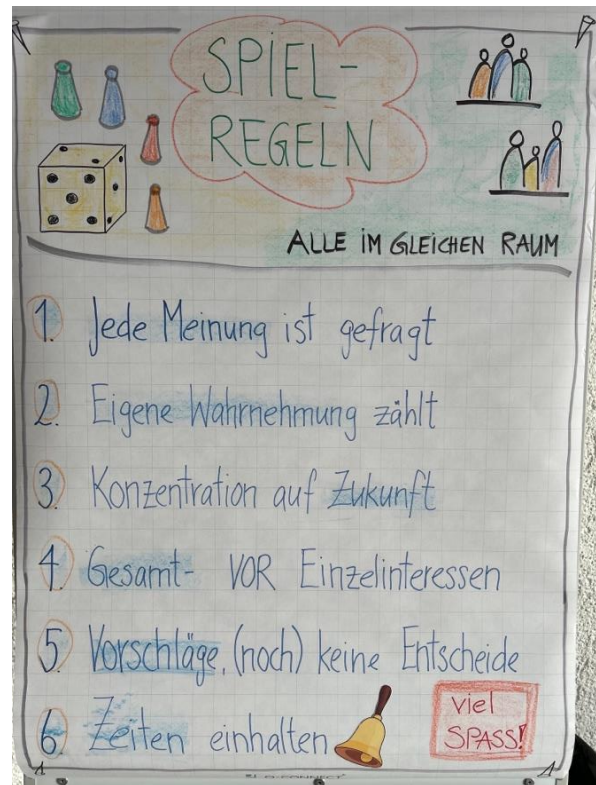 SPIEL-
REGELN
ALLE IM GLEICHEN RAUM
1. Jede Meinung ist gefragt
2. Eigene Wahrnehmung zählt
3. Konzentration auf Zukunft
4. Gesamt- VOR Einzelinteressen
5. Vorschläge, (noch) keine Entscheide
6. Zeiten einhalten
viel
SPASS!